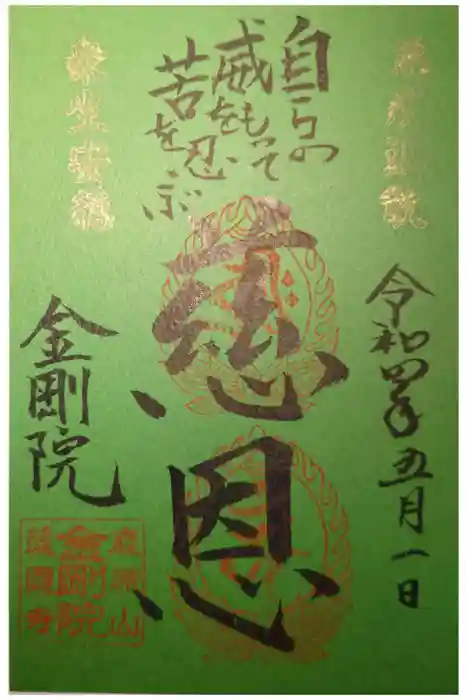 令和四年五月一日
自らの
威をもって
苦を忍ぶ
慈恩
衆生安穏
金剛院
金剛院